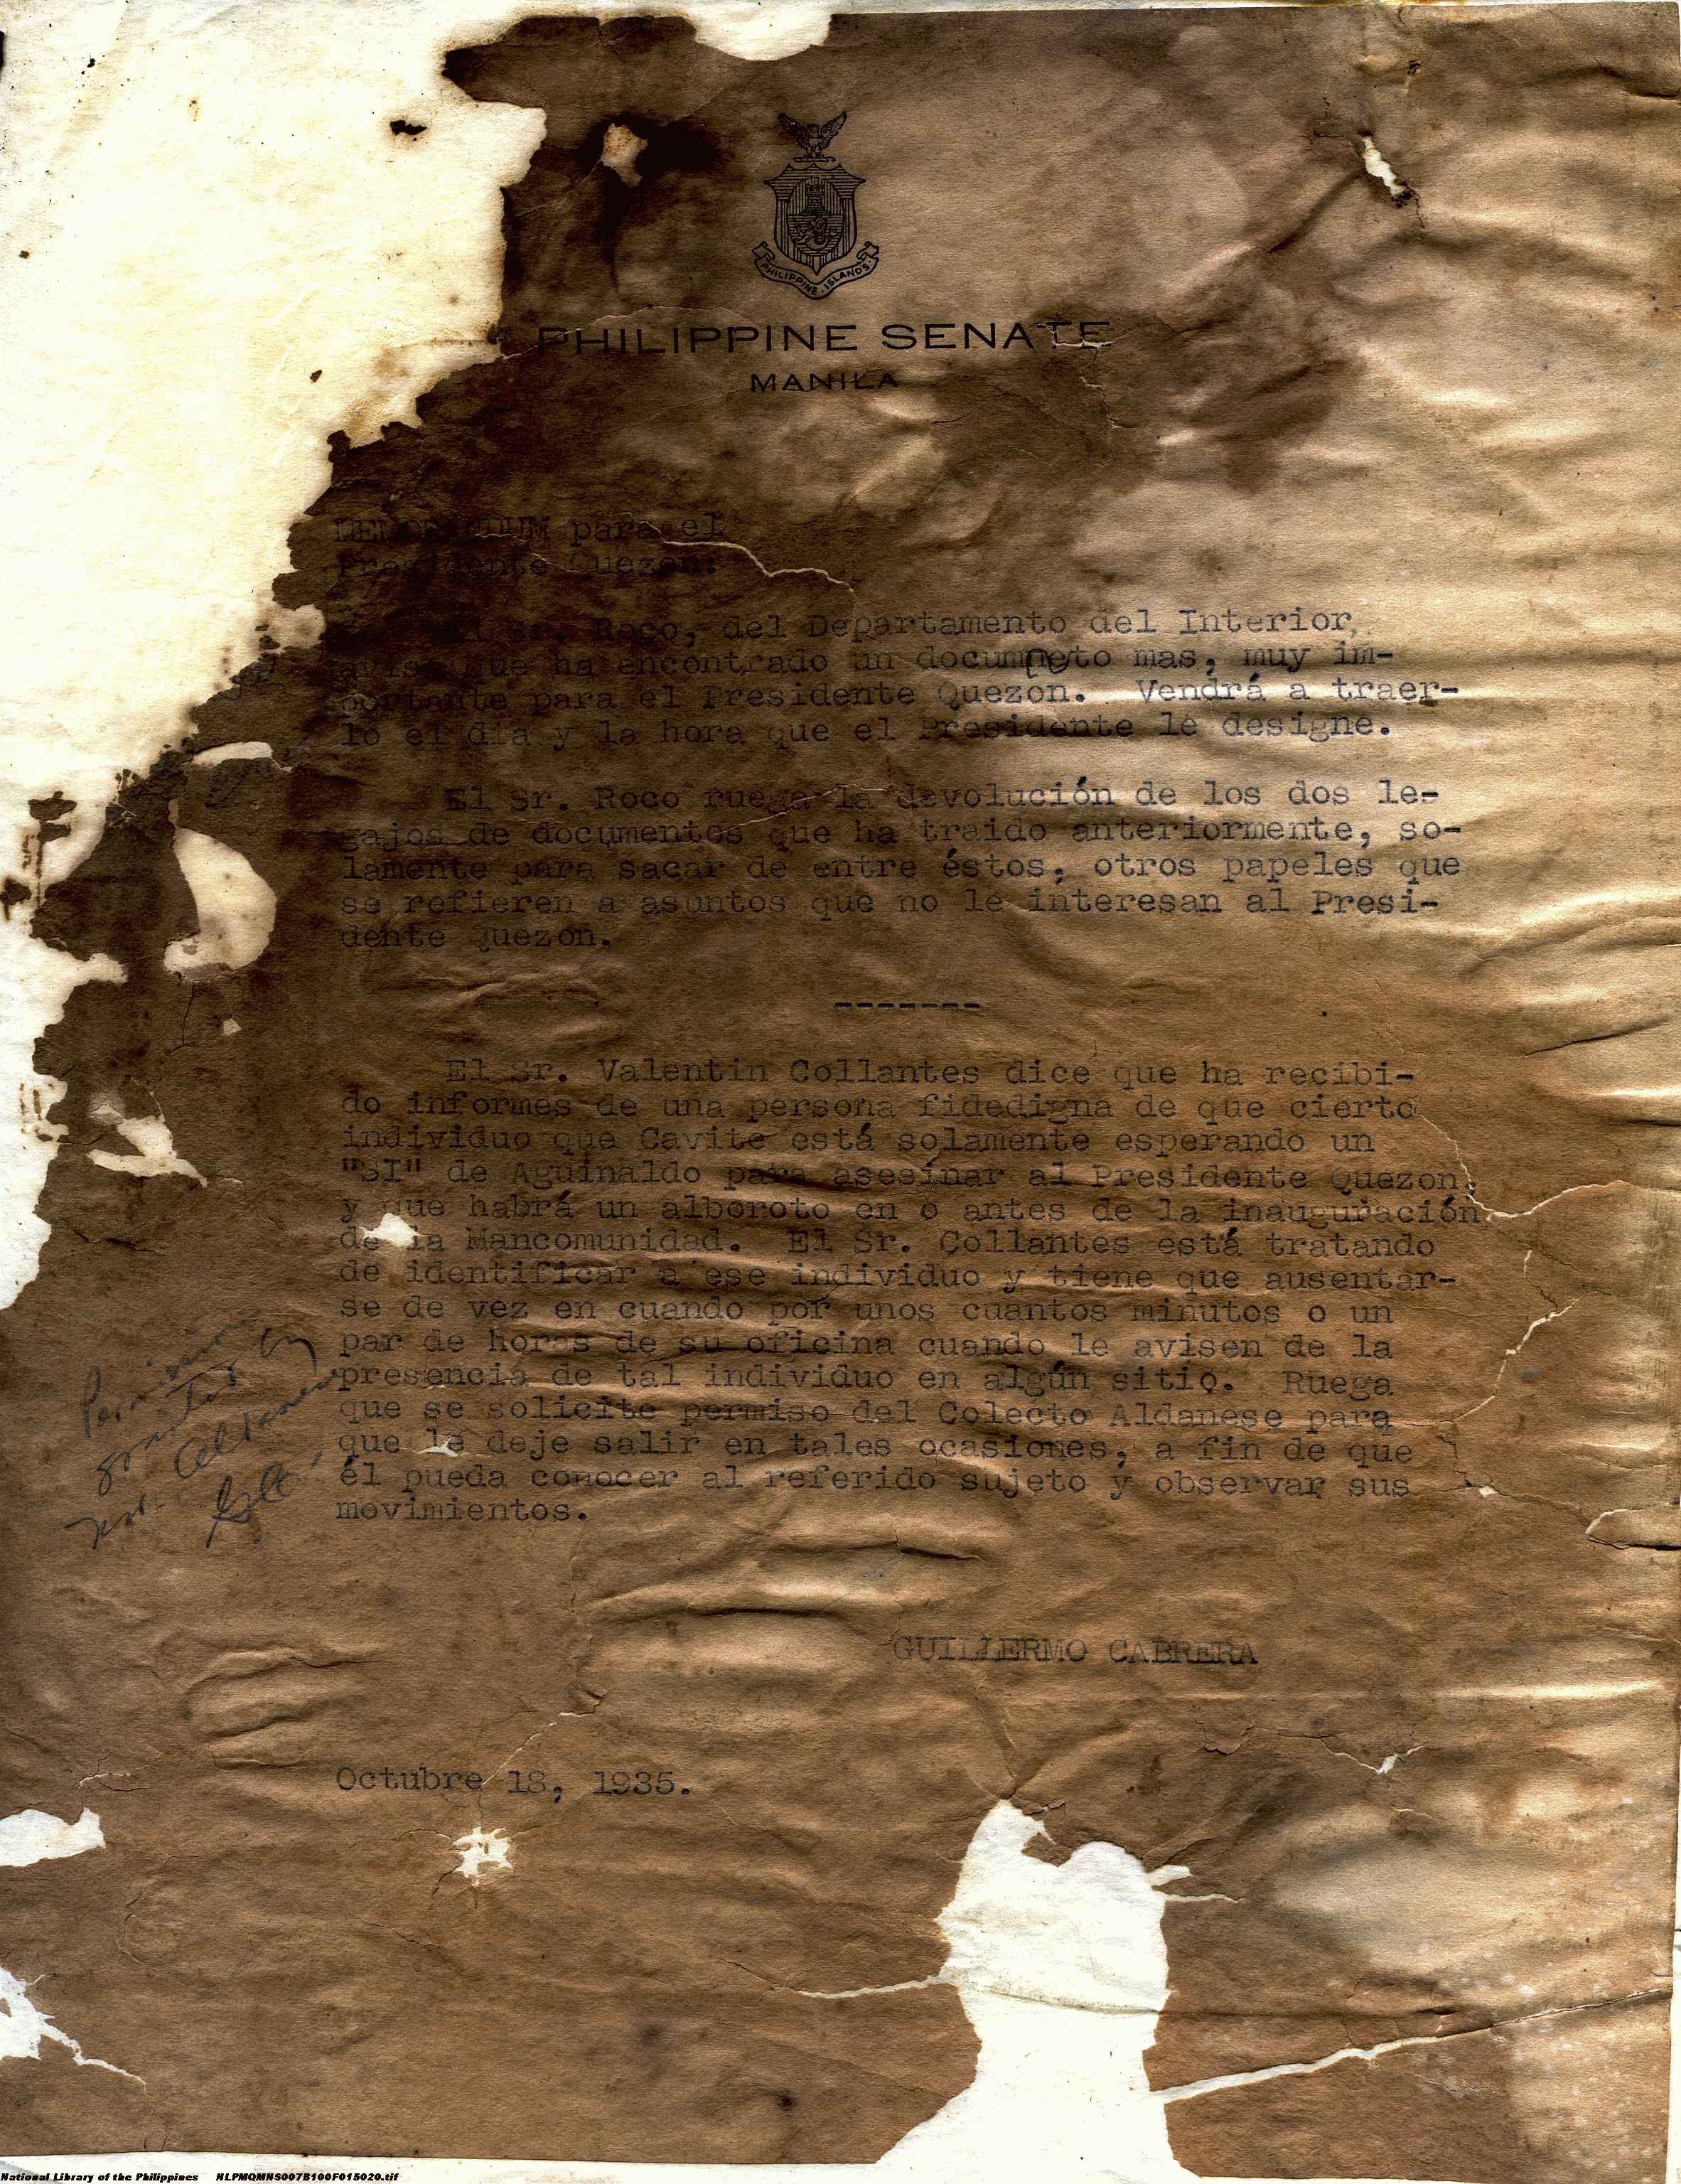 PHILIPPINE ISLANDS
PHILIPPINE SENATE
MANILA
MEMORANDUM para el
Presidente Quezon:
El Sr. Roco, del Departamento del Interior,
avisa que ha encontrado un documneto mas, muy im-
portante para el Presidente Quezon. Vendrá a traer-
lo el día y la hora que el Presidente le designe.
El Sr. Roco ruega la devolución de los dos le-
gajos de documentos que ha traido anteriormente, so-
lamente para sacar de entre éstos, otros papeles que
se refieren a asuntos que no le interesan al Presi-
dente Quezon.
-------
El Sr. Valentin Collantes dice que ha recibi-
do informes de una persona fidedigna de que cierto
individuo que Cavite está solamente esperando un
"SI" de Aguinaldo para asesinar al Presidente Quezon,
y que habrá un alboroto en o antes de la inauguración
de la Mancomunidad. El Sr. Collantes está tratando
de identificar a ese individuo y tiene que ausentar-
se de vez en cuando por unos cuantos minutos o un
par de horas de su oficina cuando le avisen de la
presencia de tal individuo en algún sitio. Ruega
que se solicite permiso del Colecto Aldanese para
que le deje salir en tales ocasiones, a fin de que
él pueda conocer al referido sujeto y observar sus
movimientos.
Permission
granted by
Aldanese
GUILLERMO CABRERA
Octubre 18, 1935.
National Library of the Philippines NLPMQMNS007B100F015020.tif